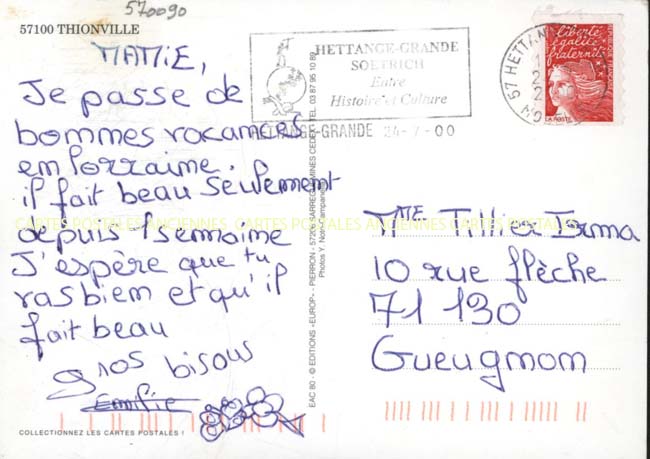 570090
57100 THIONVILLE
MAMIE,
Je passe de
bommes vacamces
em lorraime.
il fait beau seulement
depuis 1 semaime
J'espère que tu
vas biem et qu'il
fait beau
gros bisous
Emilie
COLLECTIONNEZ LES CARTES POSTALES !
EAC 80 - © EDITIONS «EUROP» - PIERRON - 57206 SARREGUEMINES CEDEX - TEL. 03 87 95 10 89
Photos Y. Noto-Campanella
HETTANGE-GRANDE
SOETRICH
Entre
Histoire et Culture
HETTANGE-GRANDE 24-7-00
57 HETTAN
liberté
égalité
fraternité
RÉPUBLIQUE FRANÇAISE
LA POSTE
CARTES POSTALES ANCIENNES CARTES POSTALES ANCIENNES CARTES POSTALES
Mme Tillier Irma
10 rue flèche
71 130
Gueugmom